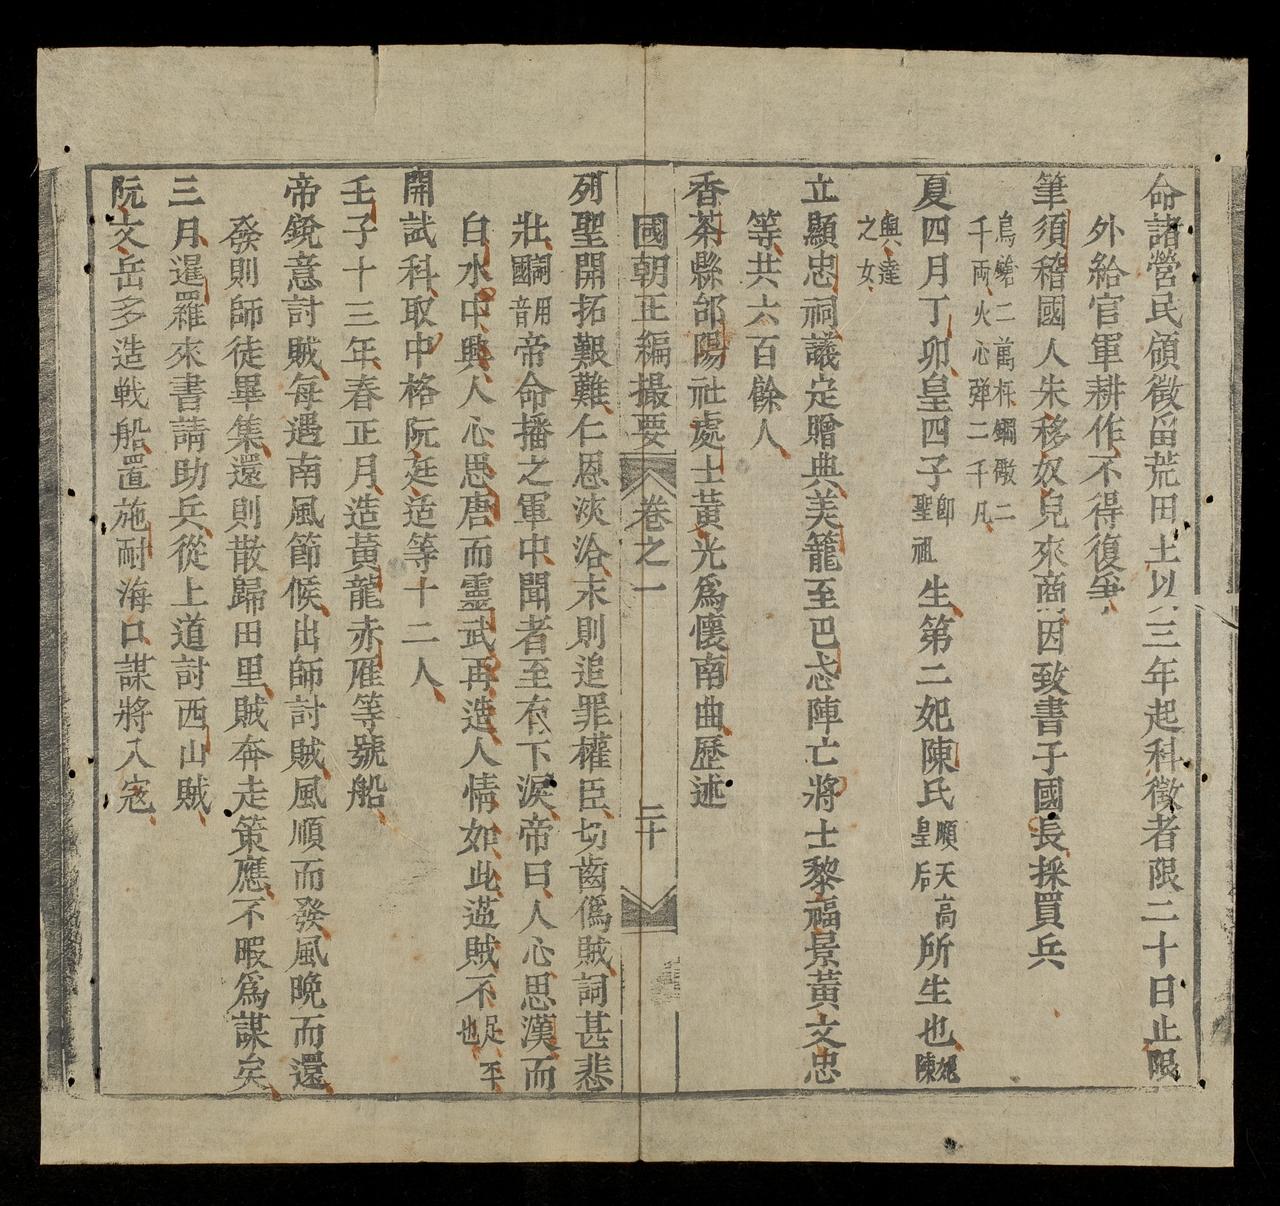 命諸營民領徵留荒田土以三年起科徵者限二十日止限
外給官軍耕作不得復爭
筆須稽國人朱移奴兒來商因致書子國長採買兵
鳥鎗二萬桿鐲礮二
千兩火心弹二千凡
夏四月丁卯皇四子
卽
聖祖
生第二妃陳氏
順天高
皇后
所生也
妃
陳
興達
之女
立顯忠祠議定贈典美籠至巴忒陣亡將士黎福景黃文忠
等共六百餘人
香茶縣邰陽社處士黃光爲懷南曲歷述
國朝正編撮要 卷之一 二十
列聖開拓艱難仁恩浹洽末則追罪權臣切齒僞賊詞甚悲
壯
詞用
國音
帝命播之軍中聞者至有下淚帝曰人心思漢而
白水中興人心思唐而靈武再造人情如此蕞賊不
足平
也
開試科取中格阮廷适等十二人
壬子十三年春正月造黃龍赤雁等號船
帝銳意討賊每遇南風節候出師討賊風順而發風晚而還
發則師徒畢集還則散歸田里賊奔走策應不暇爲謀矣
三月暹羅來書請助兵從上道討西山賊
阮文岳多造戰船置施耐海口謀將入寇